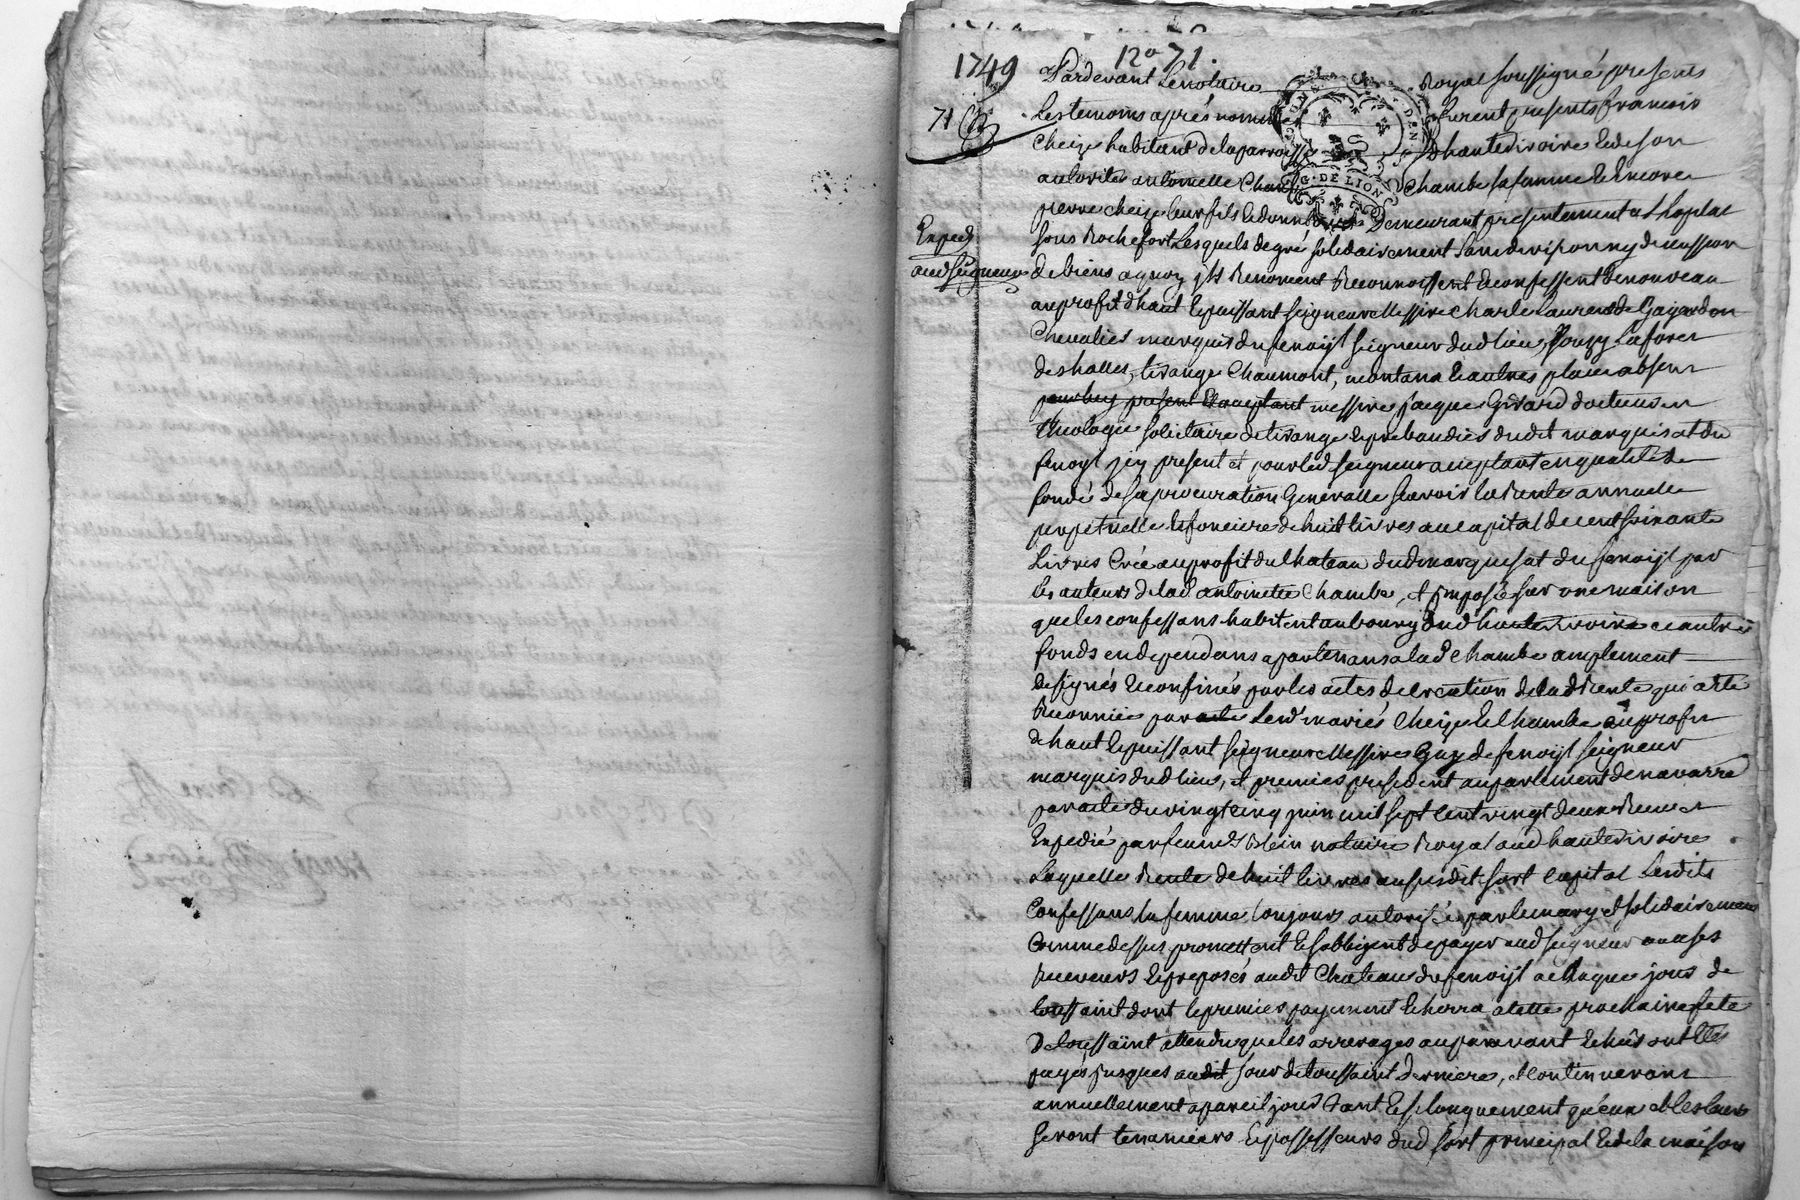 1749
12e 71.
71
Expedié
aud seigneur
GEN. DE LION
Pardevant Le notaire Royal soussigné presents
Les temoins aprés nommés furent presents francois
Cheize habitant de la parroisse dhauterivoire & de son
autorité antoinette Chambe sa femme & Encore
pierre cheize leur fils & donnataire Demeurant presentement a Lhopital
sous Rochefort Lesquels de gré solidairement sans division ny discussion
de biens a quoy ils Renoncent Reconnoissent & confessent de nouveau
au profit d'haut & puissant seigneur Messire Charle Laurent de Gayardon
Chevalier marquis du fenoyl seigneur dud lieu, Souzy Laforest
des halles, tirange Chaumont, montana & autres places absent
pour luy present & acceptant messire jacque Girard docteur en
theologie solictaire de tirange & prebandier dudit marquisat du
fenoyl j'cy present et pour led seigneur acceptant en qualité de
fondé de sa procuration Generalle scavoir la Rente annuelle
perpetuelle & fonciere de huit livres au capital de cent soixante
Livres Créé au profit du Chateau dud marquisat du fenoyl par
les auteurs de lad antoinette Chambe, et jmposée sur une maison
que les confessans habitent au bourg dud hauterivoire & autres
fonds en dependans apartenans a lad Chambe amplement
designés & confinés par les actes de creation de lad Rente qui a été
Reconnüe par acte Lesd mariés Cheize & Chambe au profit
de haut & puissant seigneur Messire Guy de fenoyl seigneur
marquis dud lieu, et premier president au parlement de navarre
par acte du vingt cinq juin mil sept cent vingt deux Receu et
Expedié par feu me Blein notaire Royal aud hauterivoire
Laquelle Rente de huit livres au susdit sort Capital Lesdits
Confessans la femme toujours autorisée par le mary et solidairement
Comme dessus promettent & s'obligent de payer aud seigneur ou a ses
Receveurs & preposés audit Chateau du fenoyl a chaque jour de
toussaint dont le premier payement Echerra a cette prochaine fete
De toussaint attendu que les arrerages auparavant Echûs ont Etés
payés jusques audit jour de toussaint derniere, et continueront
annuellement a pareil jour tant & si longuement qu'eux et les leurs
seront tenanciers & possesseurs dud sort principal & de la maison